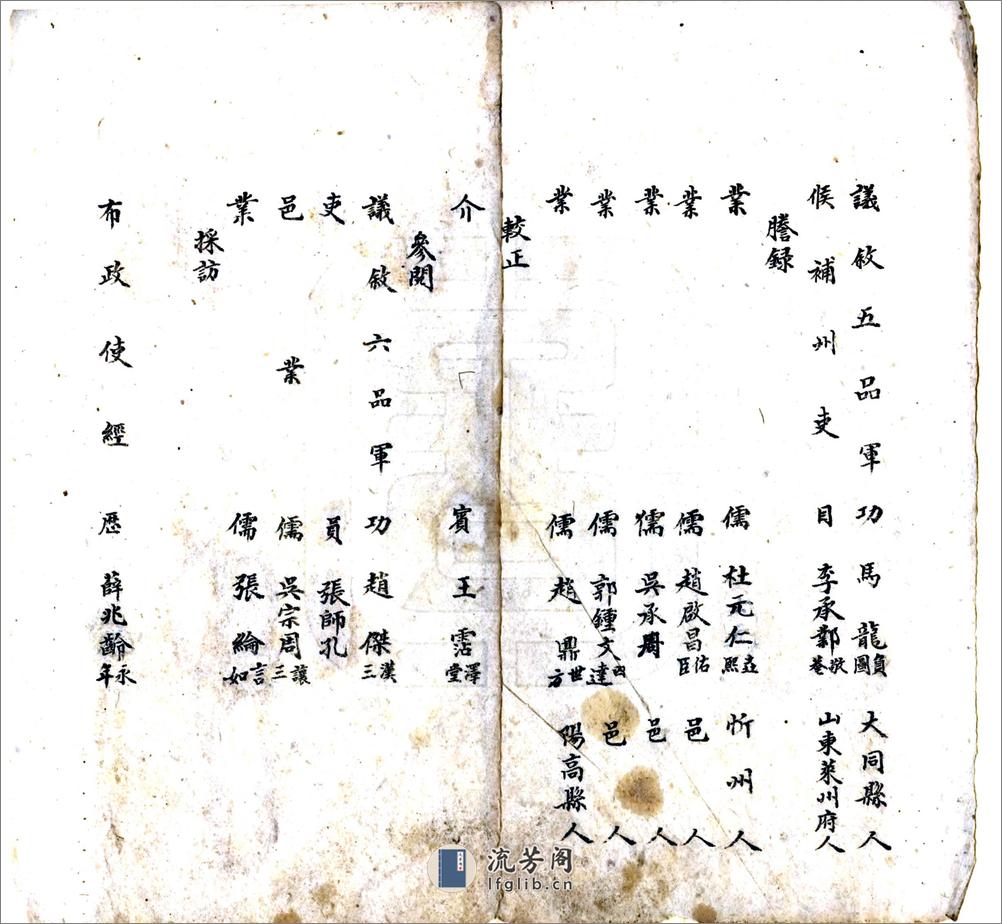 議敘五品軍功馬龍負圖大同縣人
候補州吏目李承鄴敬菴山東萊州府人
謄錄
業儒杜元仁熙忻州人
業儒趙啟昌佑臣邑人
業儒吳承周邑人
業儒郭鍾文達邑人
業儒趙鼎世方陽高縣人
較正
介賓王霑澤堂
參閱
議敘六品軍功趙傑漢三
吏員張師孔
邑業儒吳宗周讓三
業儒張綸言如
採訪
布政使經歷薛兆齡永年
流芳阁
lfglib.cn